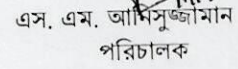 এস. এম. আনিসুজ্জামান
পরিচালক